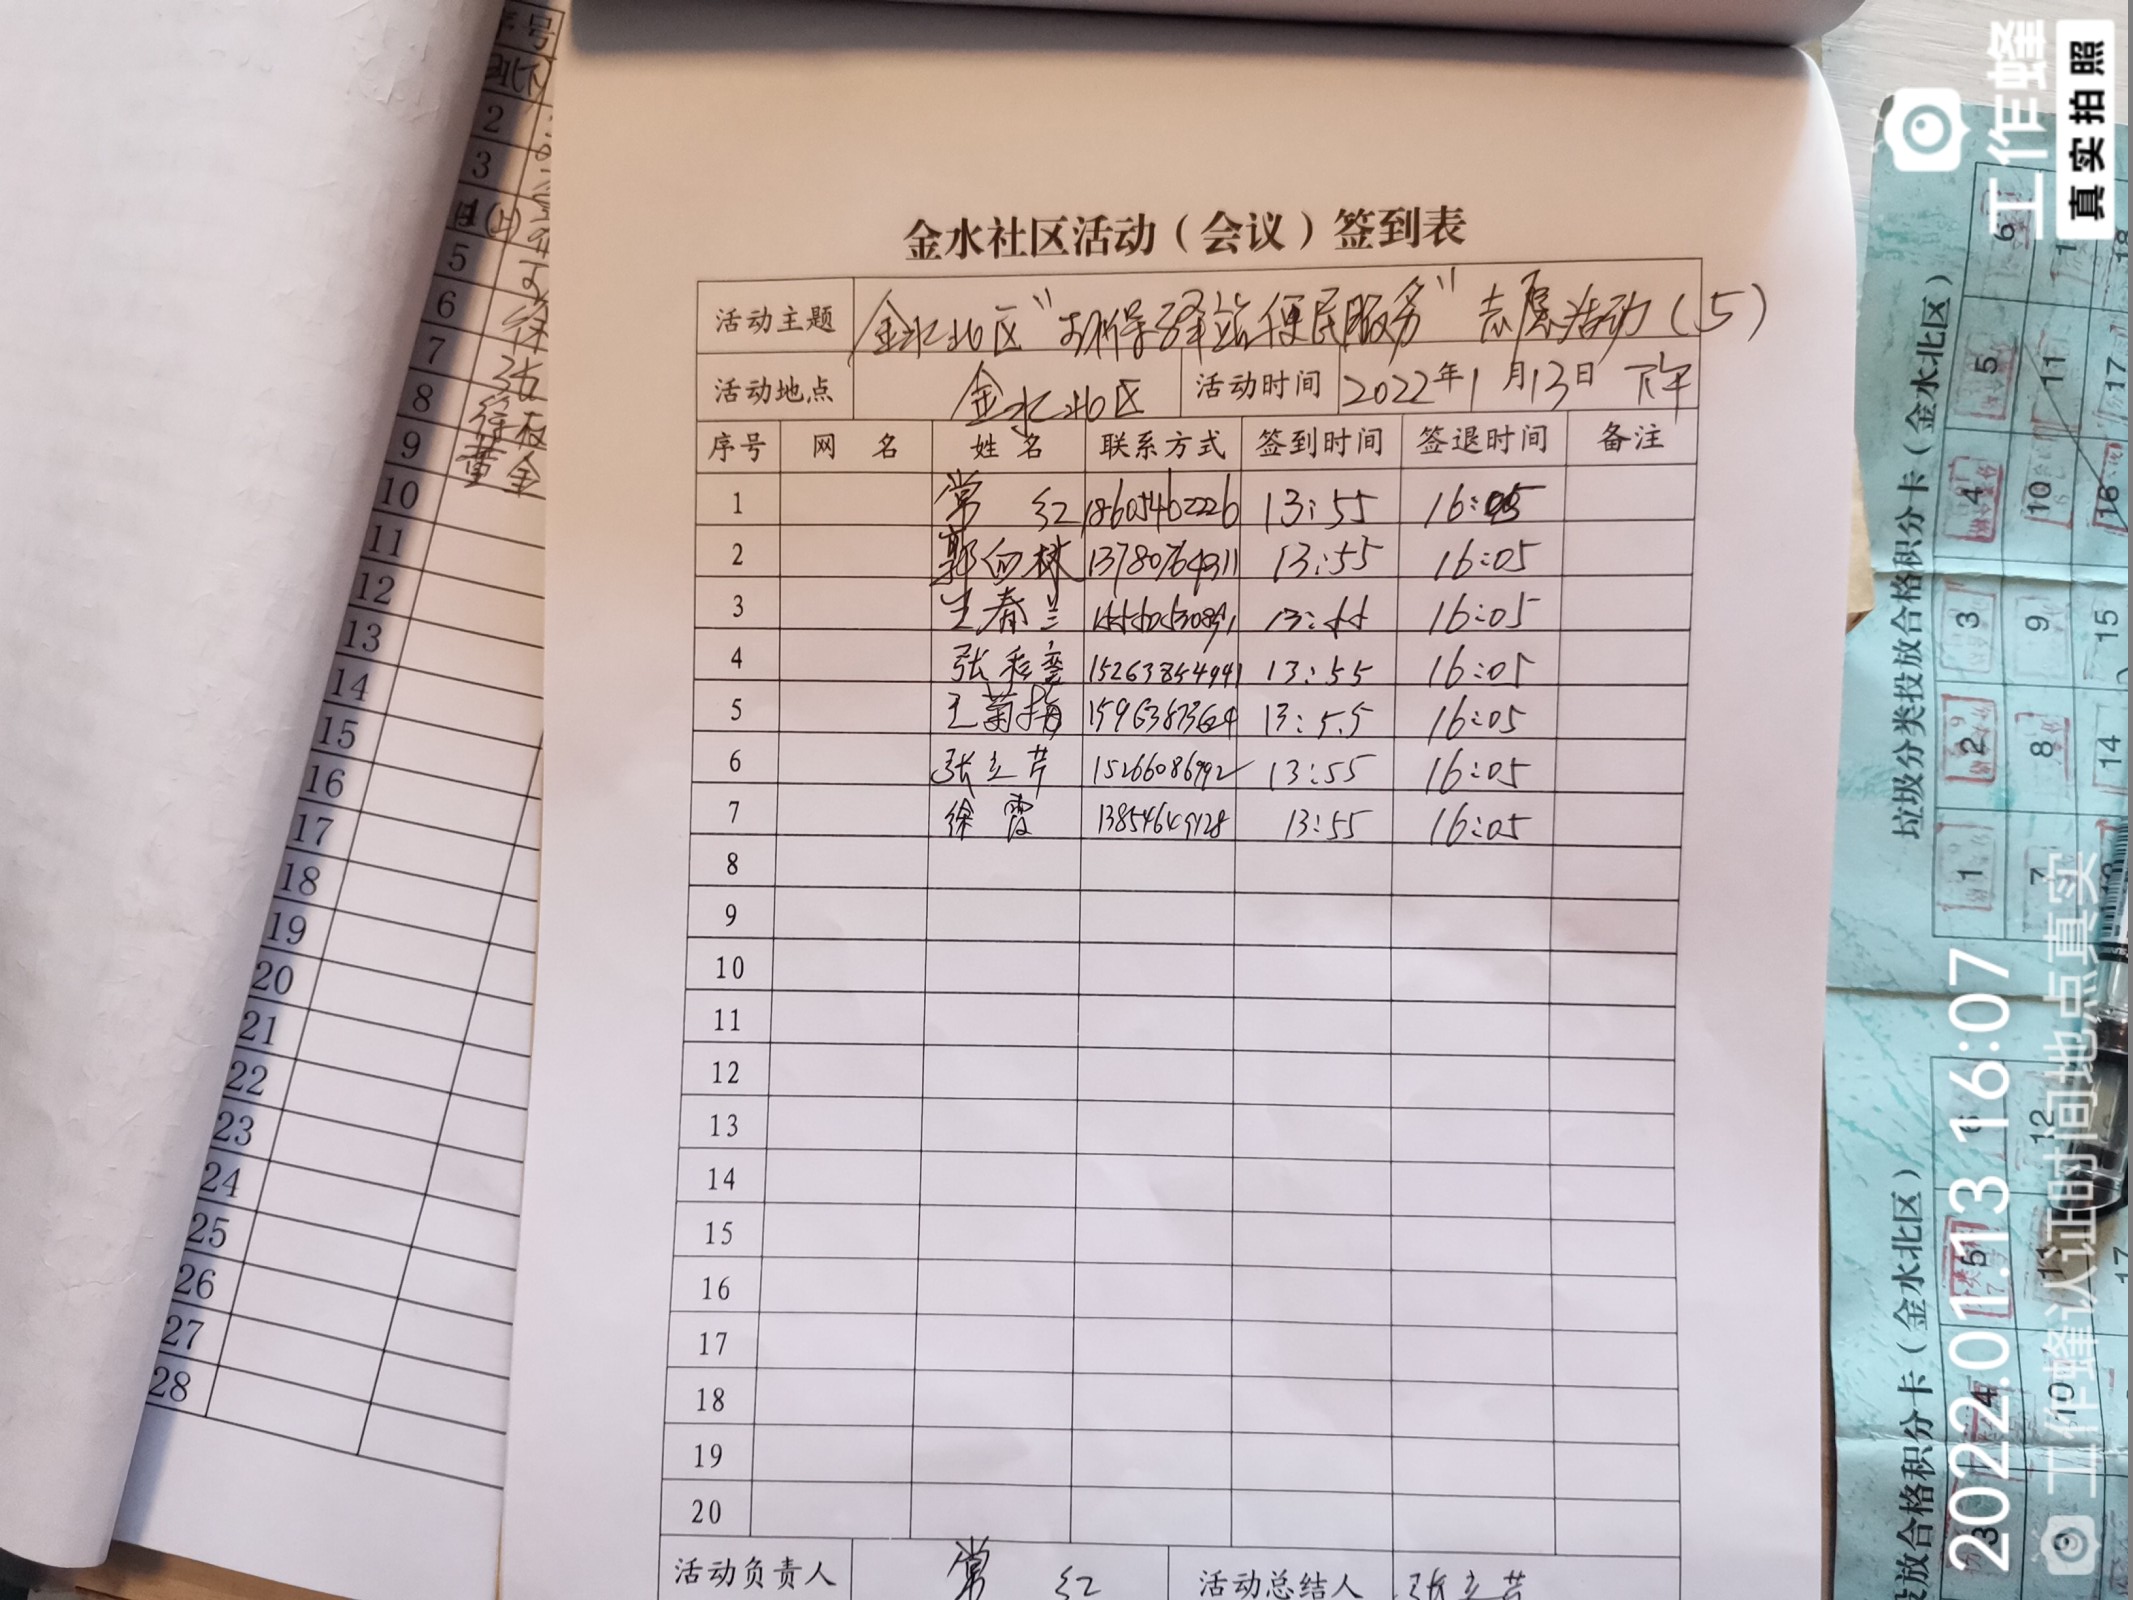 金水社区活动（会议）签到表
活动主题 金水北区"环保驿站便民服务"志愿活动（5）
活动地点 金水北区 活动时间 2022年1月13日 下午
序号 网 名 姓 名 联系方式 签到时间 签退时间 备注
1 常 红 18605462226 13:55 16:05
2 郭向林 13780764311 13:55 16:05
3 王春兰 13:55 16:05
4 张 15263854941 13:55 16:05
5 王菊梅 15963873624 13:55 16:05
6 张立芹 15266086992 13:55 16:05
7 徐霞 13854649128 13:55 16:05
8
9
10
11
12
13
14
15
16
17
18
19
20
活动负责人 常 红 活动总结人 张立芹
序号
2
3
5
6 徐
7 张
8 徐
9 黄金
10
11
12
13
14
15
16
17
18
19
20
21
22
23
24
25
26
27
28
垃圾分类投放合格积分卡（金水北区）
1 2 3 4 5 6
7 8 9 10 11
14 15 16 17 18
投放合格积分卡（金水北区）
3 4 5 6
9 10 11 12
17
工作蜂
真实拍照
2022.01.13 16:07
工作蜂认证时间地点真实